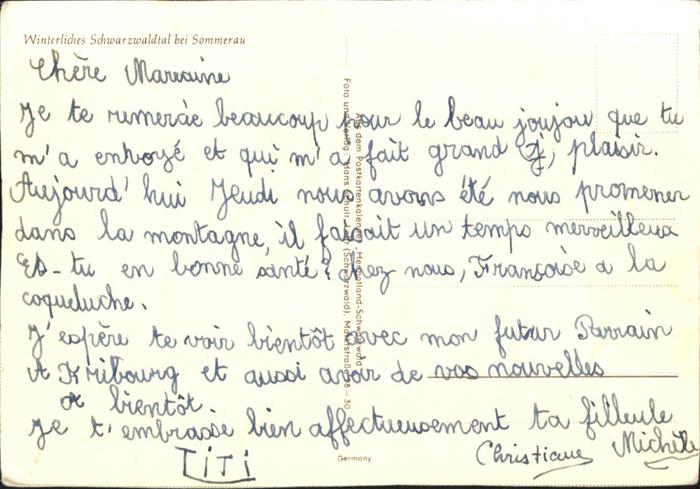 Winterliches Schwarzwaldtal bei Sommerau
Chère Marraine
Je te remercie beaucoup pour le beau joujou que tu
m'a envoyé et qui m'a fait grand plaisir.
Aujourd'hui Jeudi nous avons été nous promener
dans la montagne, il faisait un temps merveilleux
Es-tu en bonne santé? Chez nous, Françoise a la
coqueluche.
J'espère te voir bientôt avec mon futur Parrain
A Fribourg et aussi avoir de vos nouvelles
A bientôt.
Je t'embrasse bien affectueusement ta filleule
Christiane Michèle
TITI
Aus dem Postkartenkalender "Heimatland-Schwarzwald"
Foto und Verlag: Hans (Schwarzwald), 28-30
Germany